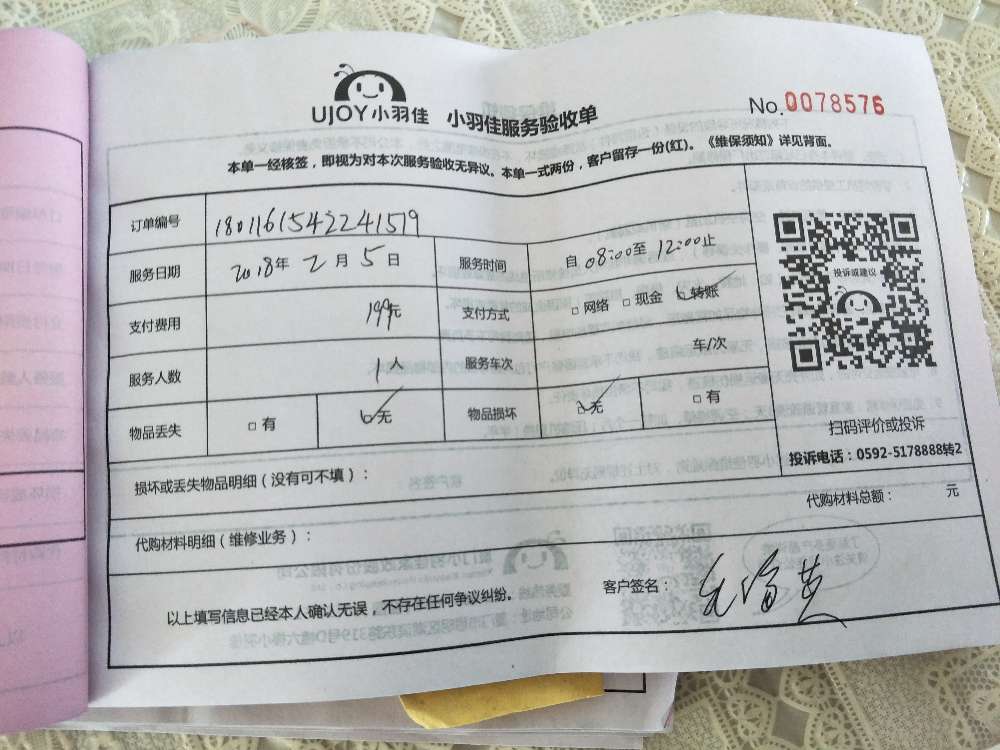 UJOY小羽佳 小羽佳服务验收单 No.0078576
本单一经核签，即视为对本次服务验收无异议。本单一式两份，客户留存一份(红)。《维保须知》详见背面。
订单编号 1801161542241579
服务日期 2018年2月5日 服务时间 自08:00至12:00止
支付费用 199元 支付方式 □网络 □现金 ☑转账
服务人数 1人 服务车次 车/次
物品丢失 □有 ☑无 物品损坏 ☑无 □有
投诉或建议
扫码评价或投诉
投诉电话：0592-5178888转2
损坏或丢失物品明细（没有可不填）：
代购材料总额： 元
代购材料明细（维修业务）：
以上填写信息已经本人确认无误，不存在任何争议纠纷。 客户签名：